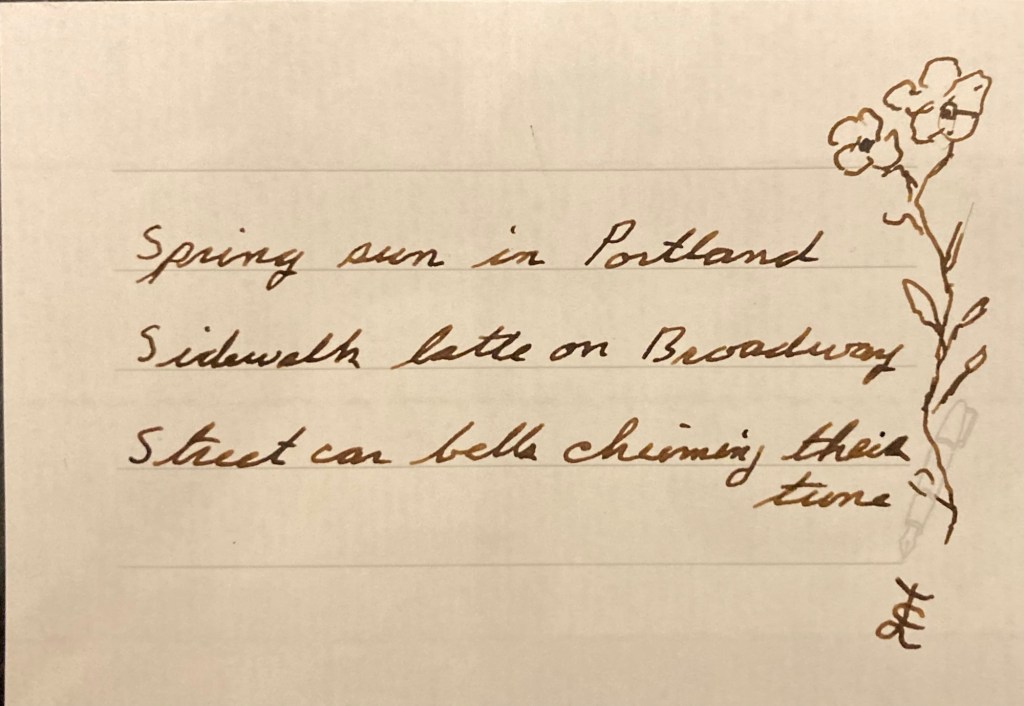 Spring sun in Portland
Sidewalk latte on Broadway
Street car bells chiming their
tune